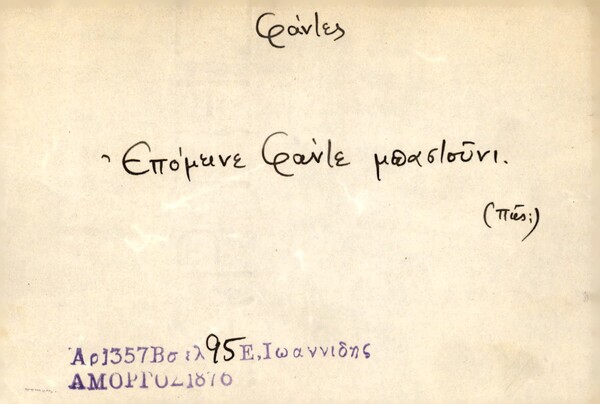 φάντες
Επόμεινε φάντε μπαστοῦνι.
(πῶς;)
Αρ 1357 Βσιλ 95 Ε, Ιωαννιδης
ΑΜΟΡΓΟΣ 1876